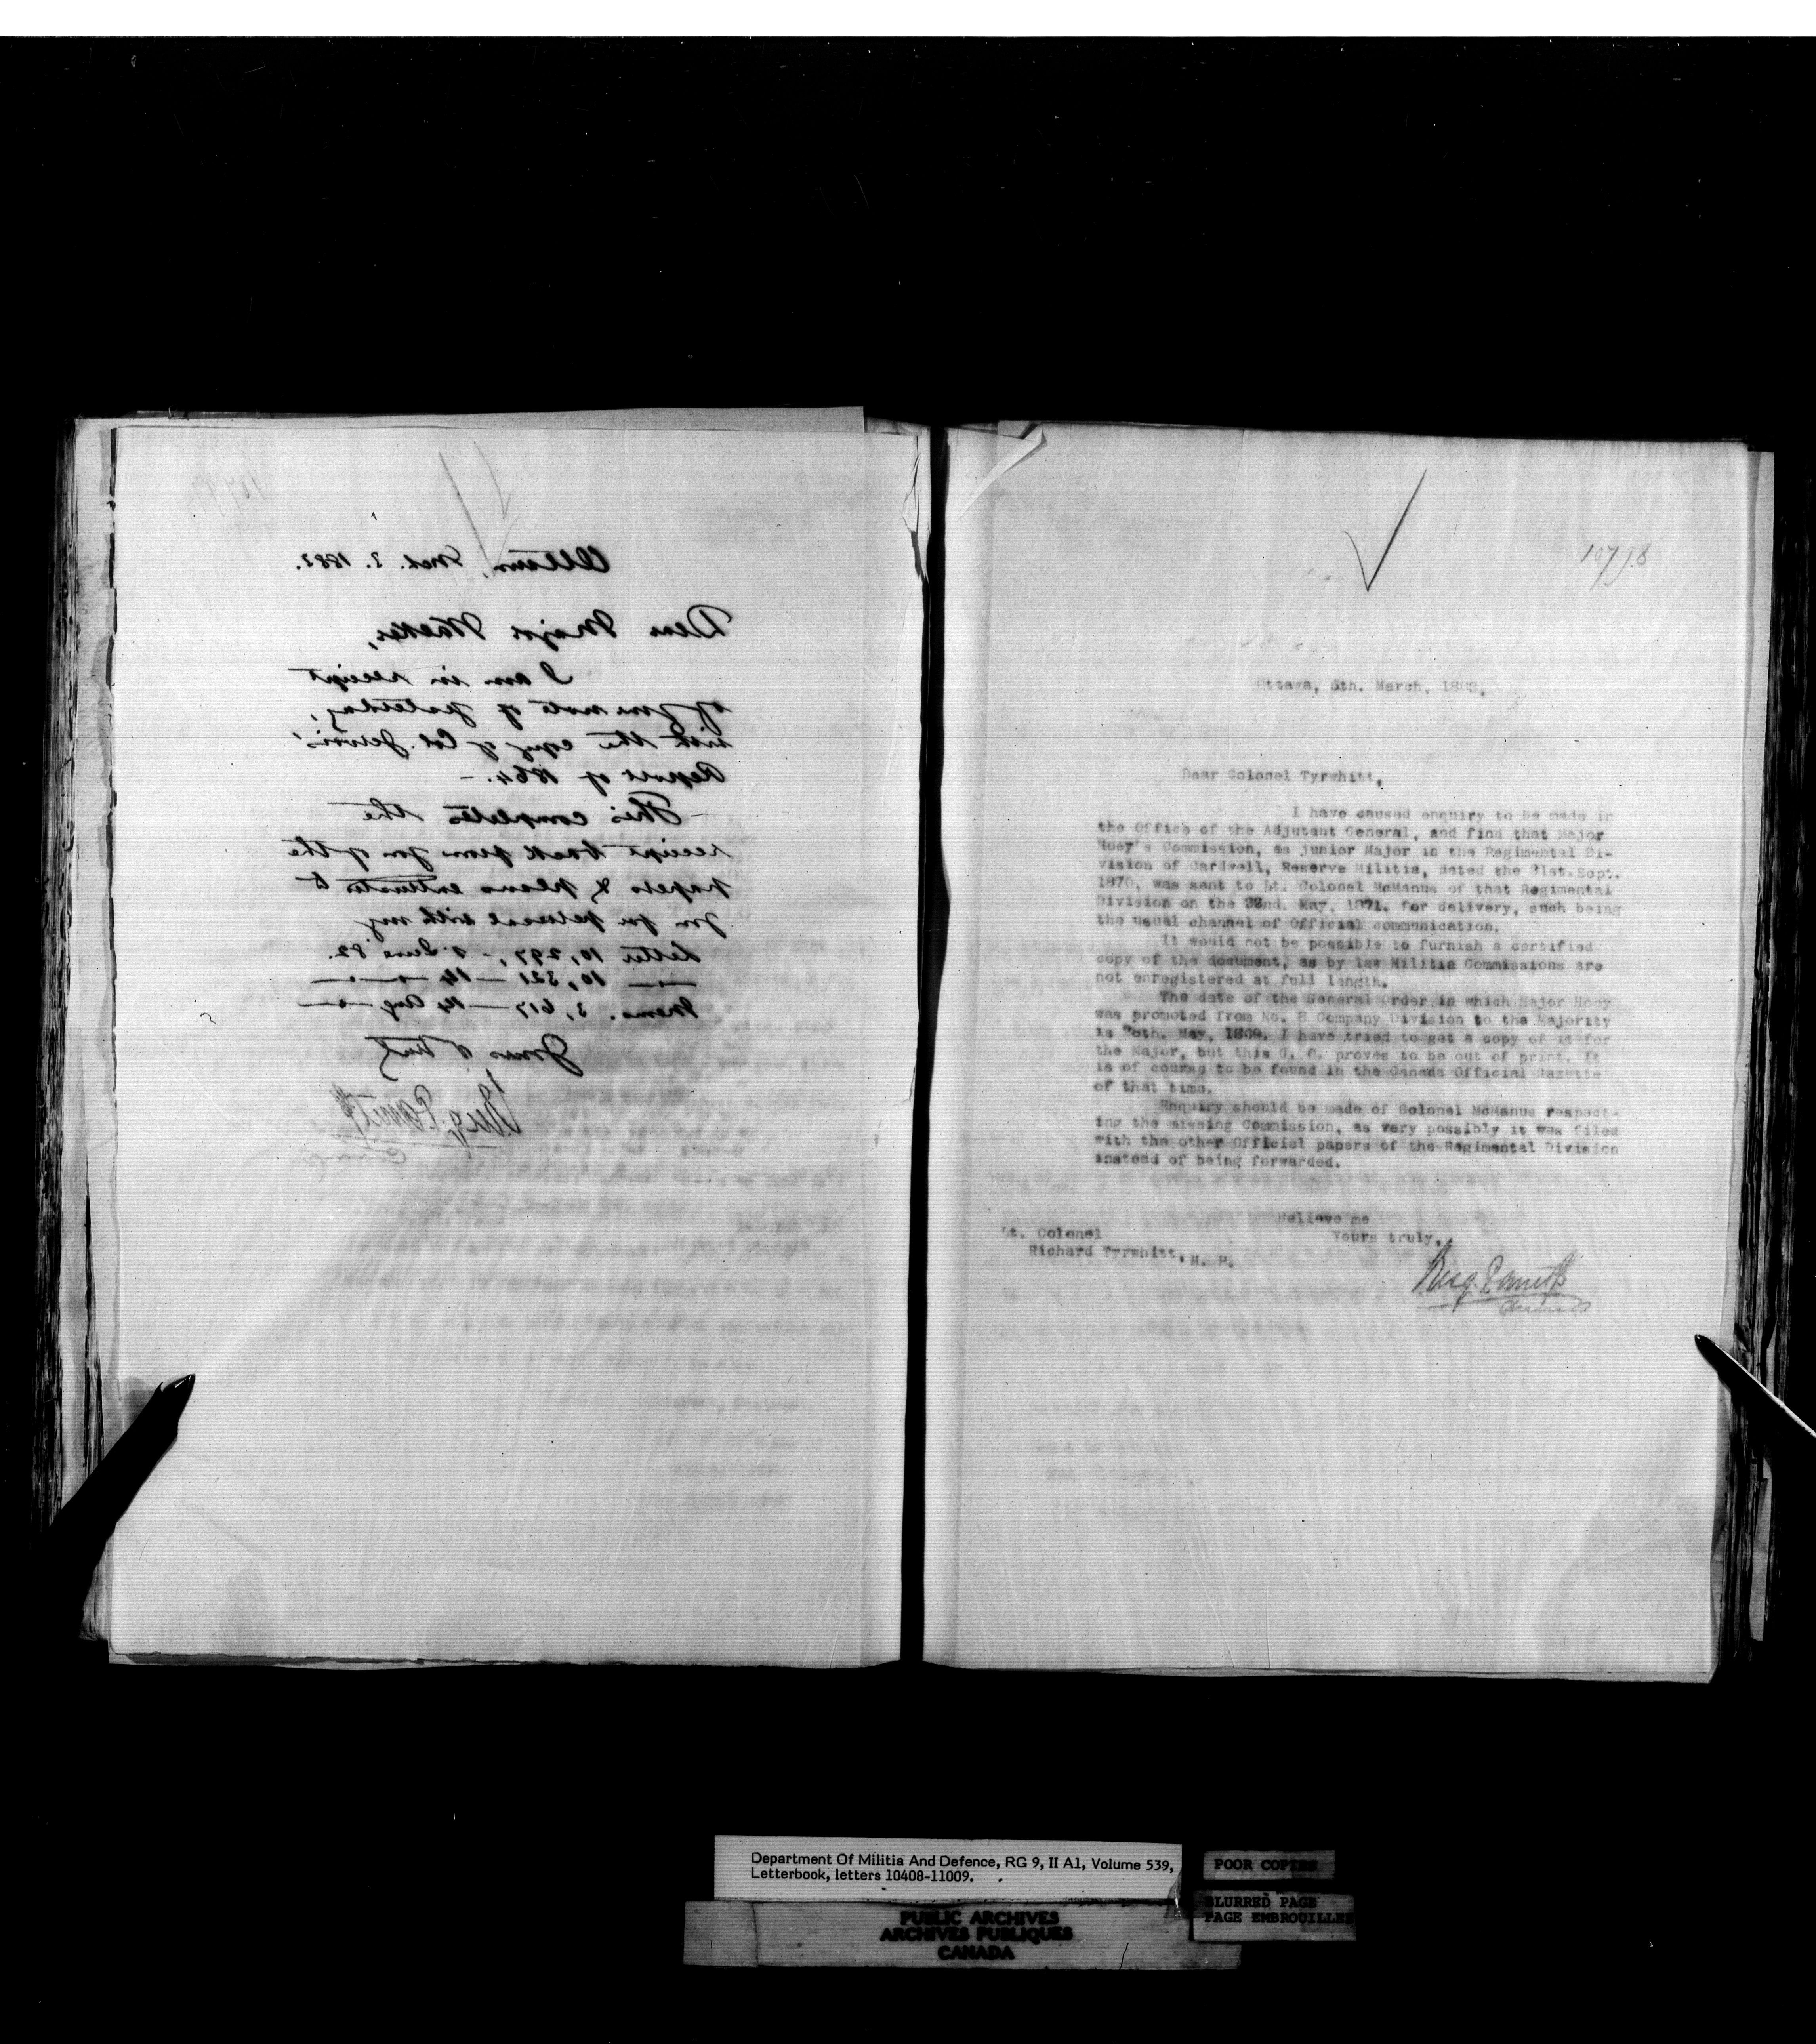 Ottawa, Mch. 2. 1883.
Dear Major Walker,
I am in receipt
of your note of yesterday,
with the copy of Col. Jervois'
Report of 1864. —
— This completes the
receipt back from you of the
papers & plans entrusted to
you for perusal with my
Letter 10,297, - June '82.
10,321 — 14
Memo. 3,617 — 14 Aug
Yours truly
Eug. Panet
10798
Ottawa, 5th. March, 1883.
Dear Colonel Tyrwhitt,
I have caused enquiry to be made in
the Office of the Adjutant General, and find that Major
Hoey's Commission, as junior Major in the Regimental Di-
vision of Cardwell, Reserve Militia, dated the 21st. Sept.
1870, was sent to Lt. Colonel McManus of that Regimental
Division on the 22nd. May, 1871. for delivery, such being
the usual channel of Official communication.
It would not be possible to furnish a certified
copy of the document, as by law Militia Commissions are
not enregistered at full length.
The date of the General Order in which Major Hoey
was promoted from No. 8 Company Division to the Majority
is May, 1869. I have tried to get a copy of it for
the Major, but this G. O. proves to be out of print. It
is of course to be found in the Canada Official Gazette
of that time.
Enquiry should be made of Colonel McManus respect-
ing the missing Commission, as very possibly it was filed
with the other Official papers of the Regimental Division
instead of being forwarded.
Believe me
Yours truly,
Lt. Colonel
Richard Tyrwhitt, M. P.
Eug. Panet
Department Of Militia And Defence, RG 9, II A1, Volume 539,
Letterbook, letters 10408-11009.
POOR COPIES
BLURRED PAGE
PAGE EMBROUILLEE
PUBLIC ARCHIVES
ARCHIVES PUBLIQUES
CANADA